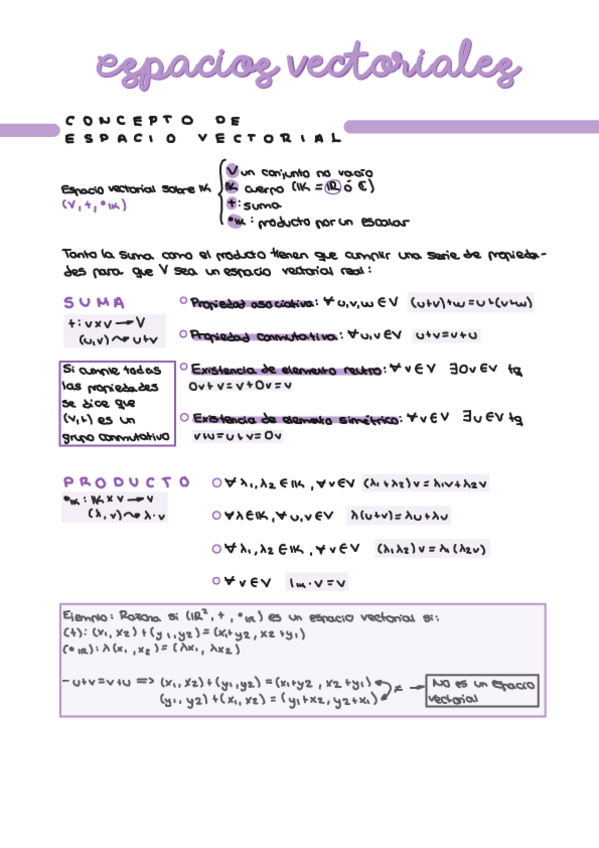 espacios vectoriales
CONCEPTO DE
ESPACIO VECTORIAL
V un conjunto no vacío
Espacio vectorial sobre IK IK cuerpo (IK = IR ó C)
(V, +, •IK) +: suma
•IK: producto por un escalar
Tanto la suma como el producto tienen que cumplir una serie de propieda-
des para que V sea un espacio vectorial real:
SUMA
+: V x V → V
(u,v) ⤳ u+v
Si cumple todas
las propiedades
se dice que
(V,+) es un
grupo conmutativo
Propiedad asociativa: ∀ u,v,w ∈ V (u+v)+w = u+(v+w)
Propiedad conmutativa: ∀ u,v ∈ V u+v = v+u
Existencia de elemento neutro: ∀ v ∈ V ∃ 0v ∈ V tq
0v + v = v + 0v = v
Existencia de elemento simétrico: ∀ v ∈ V ∃ u ∈ V tq
v+u = u+v = 0v
PRODUCTO
•IK: IK x V → V
(λ, v) ⤳ λ·v
∀ λ1, λ2 ∈ IK, ∀ v ∈ V (λ1+λ2) v = λ1v + λ2v
∀ λ ∈ IK, ∀ u,v ∈ V λ(u+v) = λu + λv
∀ λ1, λ2 ∈ IK, ∀ v ∈ V (λ1λ2) v = λ1(λ2v)
∀ v ∈ V 1IK · v = v
Ejemplo: Razona si (IR², +, •IR) es un espacio vectorial si:
(+): (x1, x2) + (y1, y2) = (x1+y2, x2+y1)
(•IR): λ(x1, x2) = (λx1, λx2)
- u+v = v+u => (x1, x2) + (y1, y2) = (x1+y2, x2+y1)
(y1, y2) + (x1, x2) = (y1+x2, y2+x1)
≠ → No es un espacio
vectorial